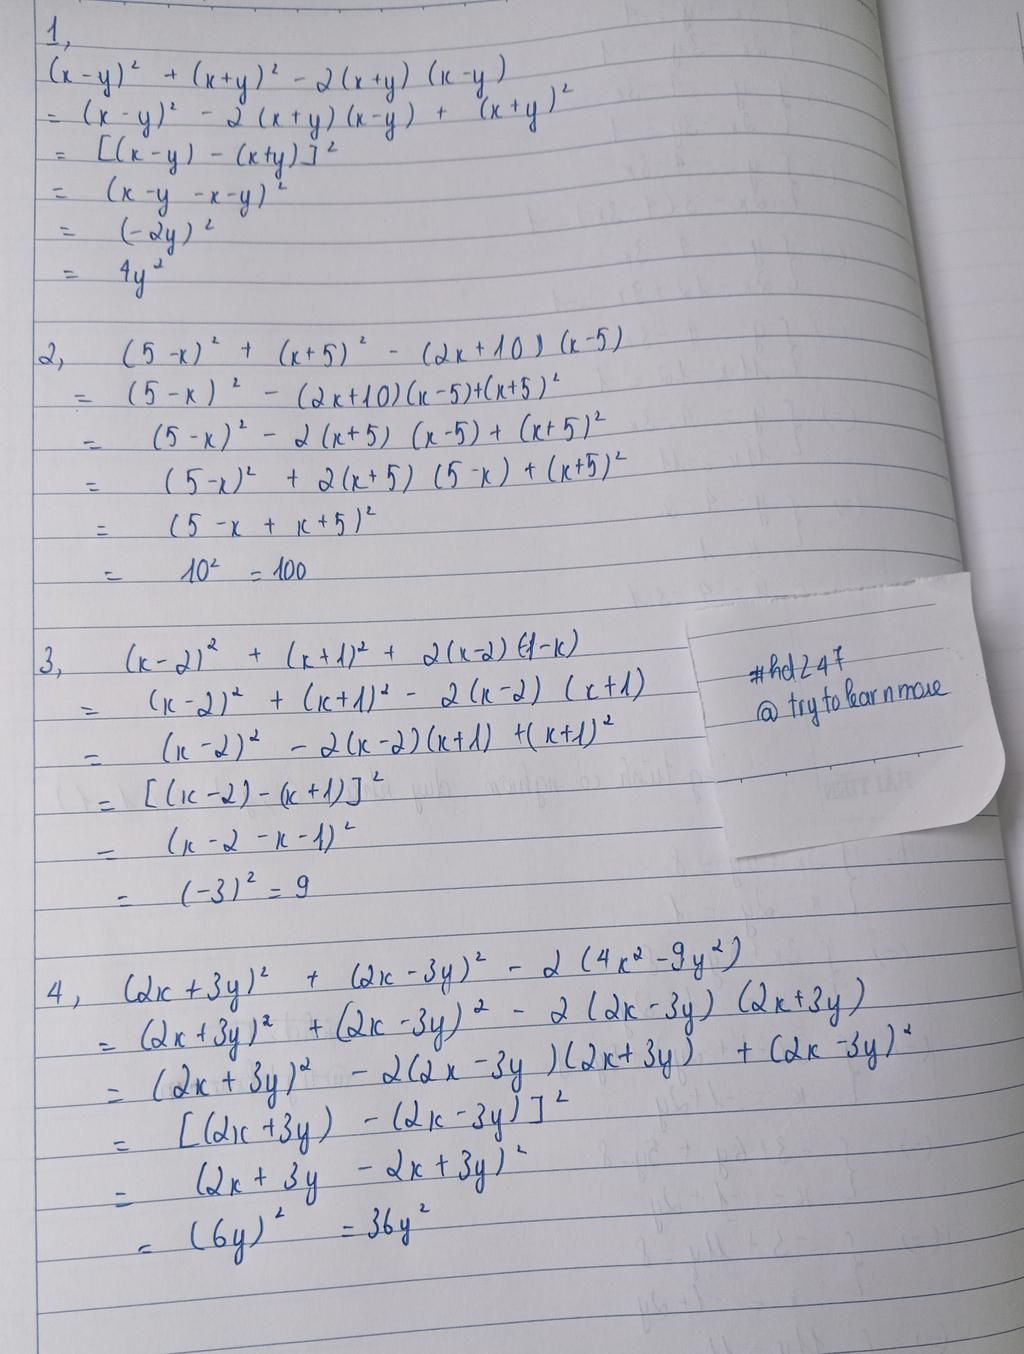 1,
(x-y)² + (x+y)² - 2(x+y) (x-y)
= (x-y)² - 2(x+y)(x-y) + (x+y)²
= [(x-y) - (x+y)]²
= (x-y -x-y)²
= (-2y)²
= 4y²
2, (5-x)² + (x+5)² - (2x+10) (x-5)
= (5-x)² - (2x+10)(x-5)+(x+5)²
= (5-x)² - 2(x+5) (x-5) + (x+5)²
= (5-x)² + 2(x+5) (5-x) + (x+5)²
= (5-x + x+5)²
= 10² = 100
3, (x-2)² + (x+1)² + 2(x-2) (-1-x)
= (x-2)² + (x+1)² - 2(x-2) (x+1)
= (x-2)² - 2(x-2)(x+1) +(x+1)²
= [(x-2)-(x+1)]²
= (x-2-x-1)²
= (-3)² = 9
#hd247
@ trytolearnmore
4, (2x+3y)² + (2x-3y)² - 2 (4x²-9y²)
= (2x+3y)² +(2x-3y)² - 2 (2x-3y) (2x+3y)
= (2x+3y)² - 2(2x-3y)(2x+3y) + (2x-3y)²
= [(2x+3y) - (2x-3y)]²
= (2x+3y - 2x+3y)²
= (6y)² = 36y²